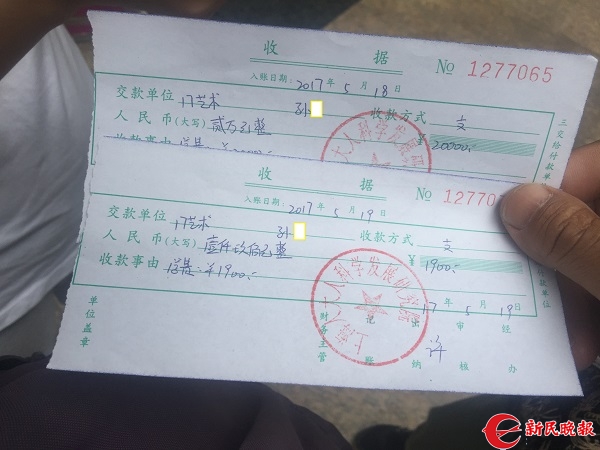 收 据 № 1277065
入账日期: 2017 年 5 月 18 日
交款单位 17艺术 孙 收款方式 支
人民币(大写) 贰万元整 ¥ 20000.-
三交给付款单
收 据 № 12770
入账日期: 2017 年 5 月 19 日
交款单位 17艺术 孙 收款方式 支
人民币(大写) 壹仟玖佰元整 ¥ 1900.-
收款事由 ¥1900.-
17 年 5 月 19 日
单位盖章 财务主管 记账 出纳 审核 经办
许
新民晚报